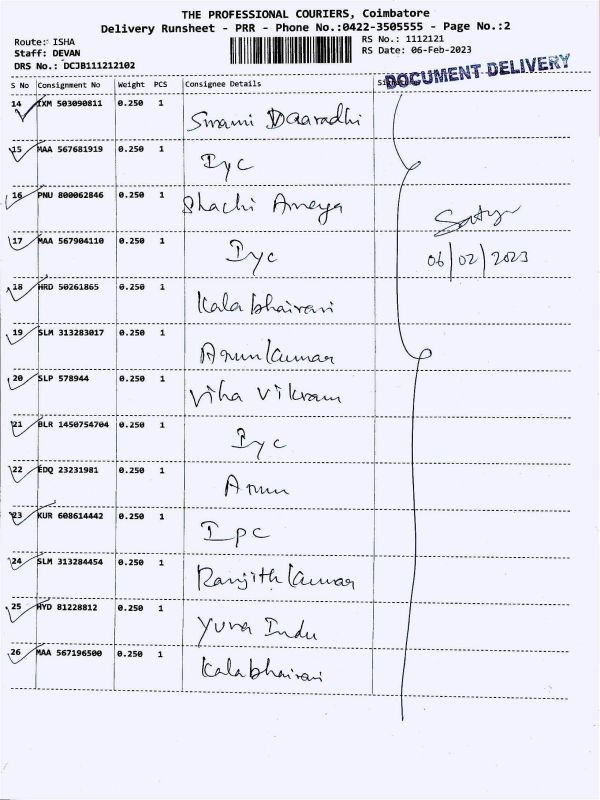 THE PROFESSIONAL COURIERS, Coimbatore
Delivery Runsheet - PRR - Phone No.:0422-3505555 - Page No.:2
Route: ISHA
RS No.: 1112121
Staff: DEVAN
RS Date: 06-Feb-2023
DRS No.: DCJB111212102
DOCUMENT DELIVERY
S No Consignment No Weight PCS Consignee Details
14 IXM 503090811 0.250 1 Swami Daaradhi
15 MAA 567681919 0.250 1 Iyc
16 PNU 800062846 0.250 1 Shachi Ameya
17 MAA 567904110 0.250 1 Iyc
06/02/2023
18 HRD 50261865 0.250 1 Kalabhairavi
19 SLM 313283017 0.250 1 Arunkumar
20 SLP 578944 0.250 1 Viha Vikram
21 BLR 1450754704 0.250 1 Iyc
22 EDQ 23231981 0.250 1 Arun
23 KUR 608614442 0.250 1 Ipc
24 SLM 313284454 0.250 1 Ranjithkumar
25 HYD 81228812 0.250 1 Yuva Indu
26 MAA 567196500 0.250 1 Kalabhairavi